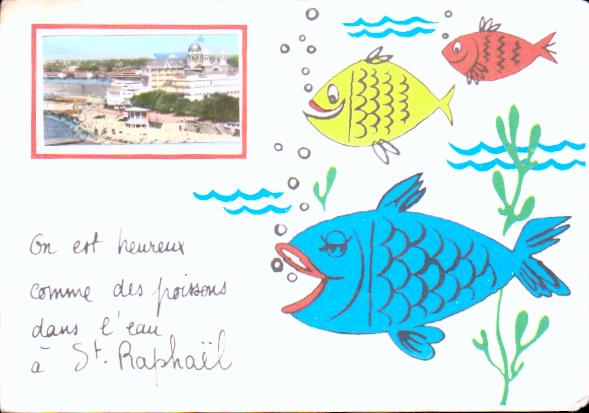 On est heureux
comme des poissons
dans l'eau
à St. Raphaël